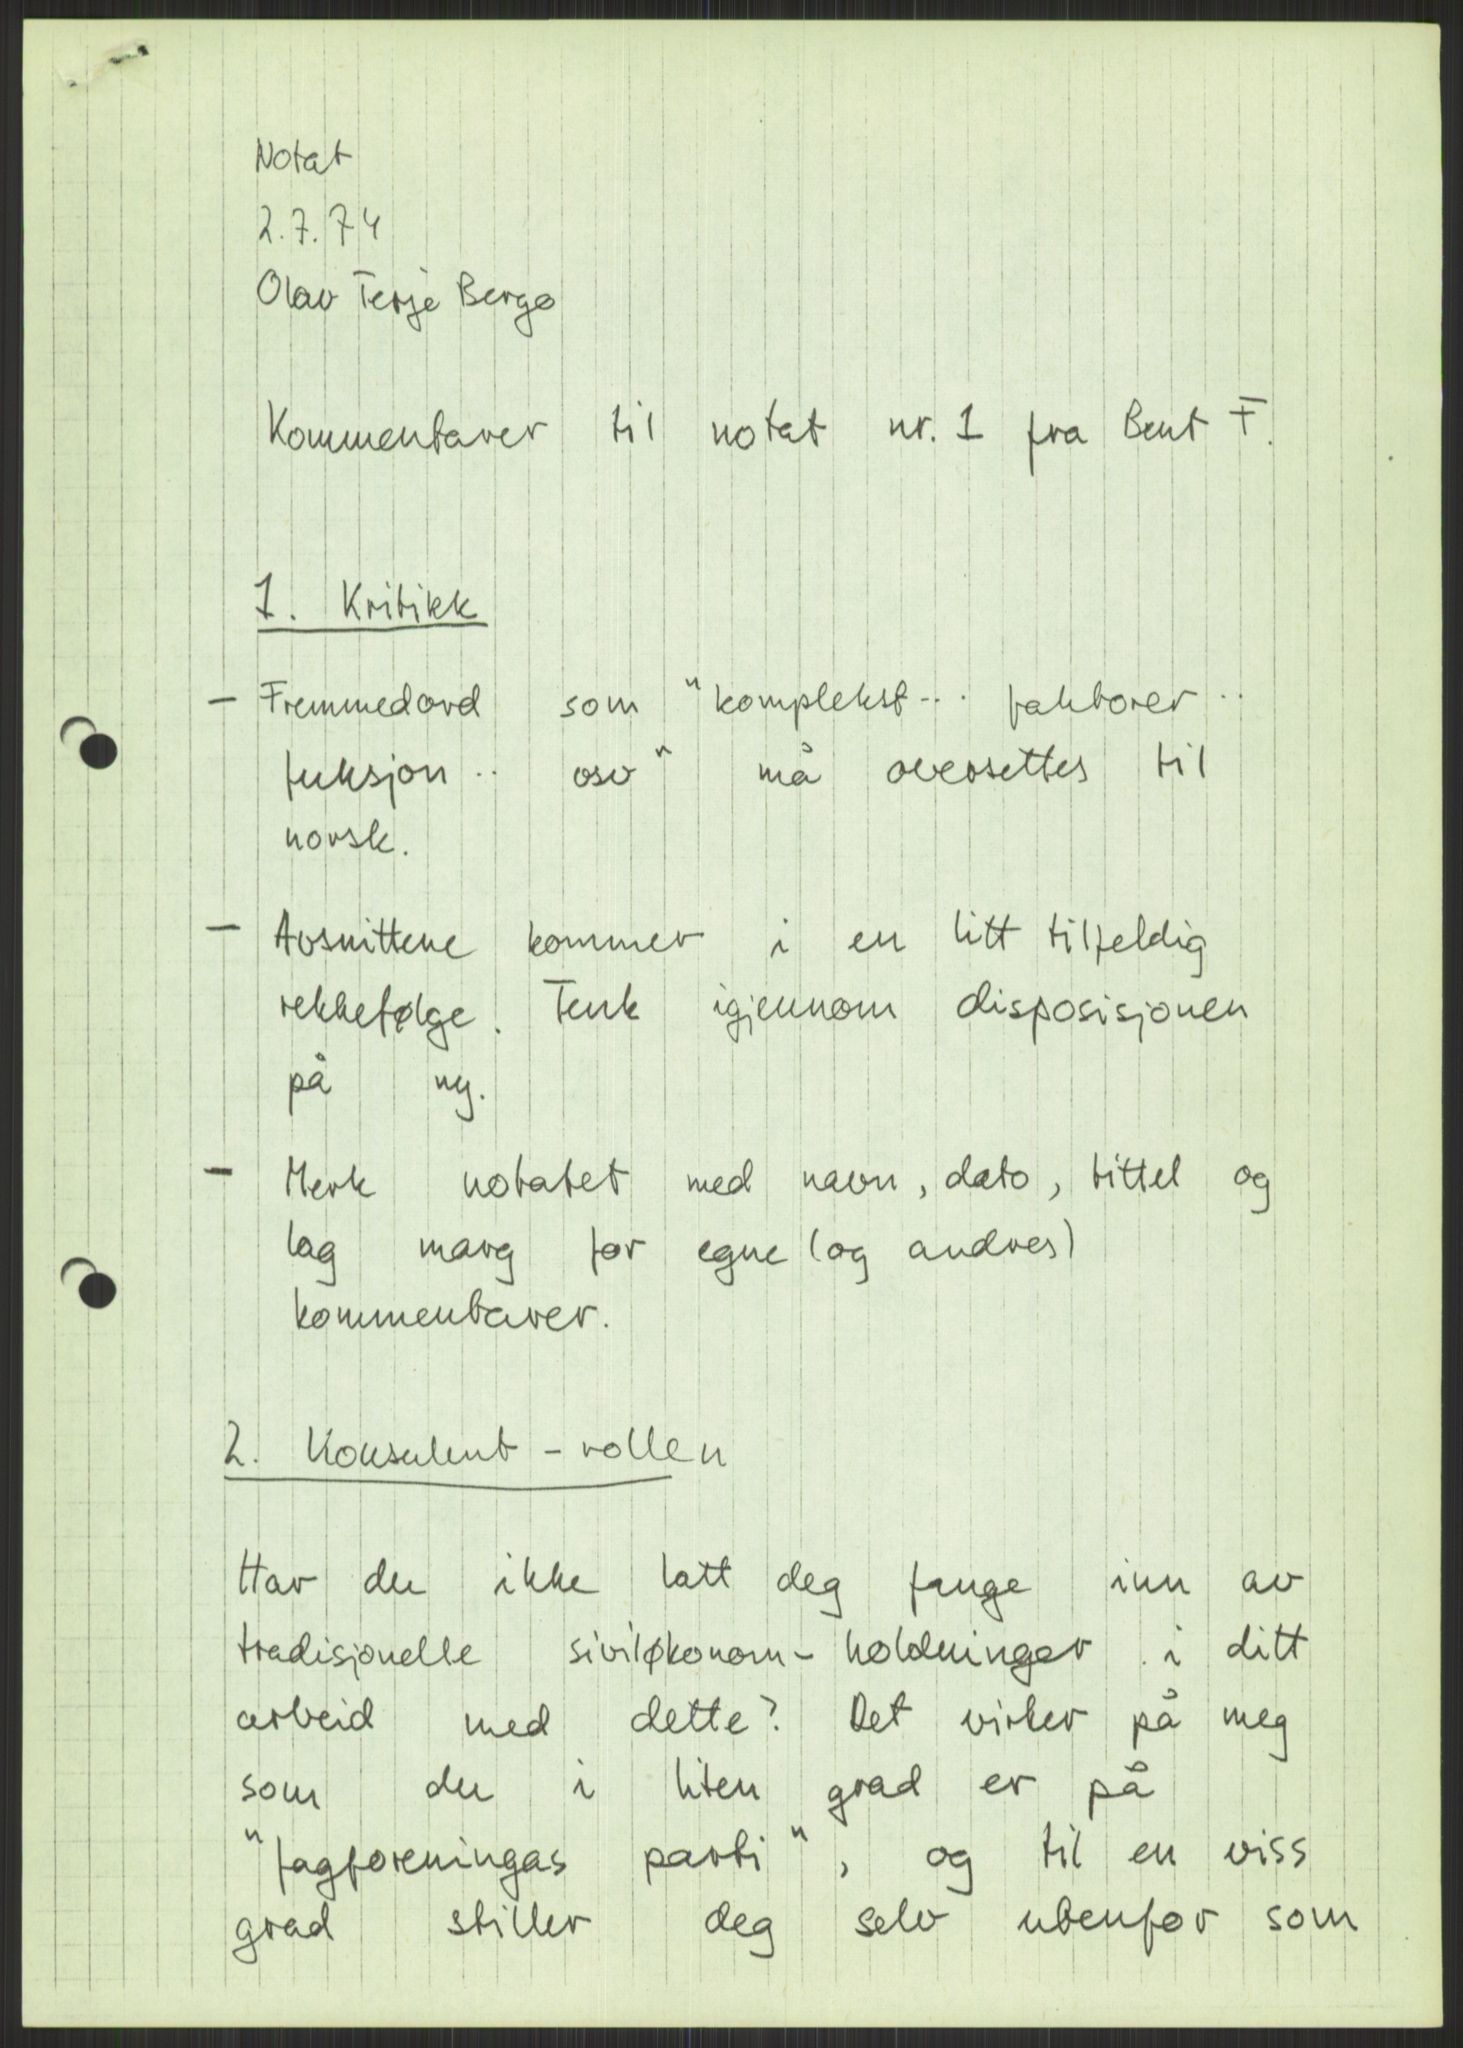 Notat
2.7.74
Olav Terje Bergo
Kommentarer til notat nr. 1 fra Bent F.
1. Kritikk
- Fremmedord som "komplekst... faktorer..
fuksjon.. osv" må oversettes til
norsk.
- Avsnittene kommer i en litt tilfeldig
rekkefølge. Tenk igjennom disposisjonen
på ny.
- Merk notatet med navn, dato, tittel og
lag marg for egne (og andres)
kommentarer.
2. Konsulent-rollen
Har du ikke latt deg fange inn av
tradisjonelle siviløkonom-holdninger i ditt
arbeid med dette? Det virker på meg
som du i liten grad er på
"fagforeningas parti", og til en viss
grad stiller deg selv utenfor som